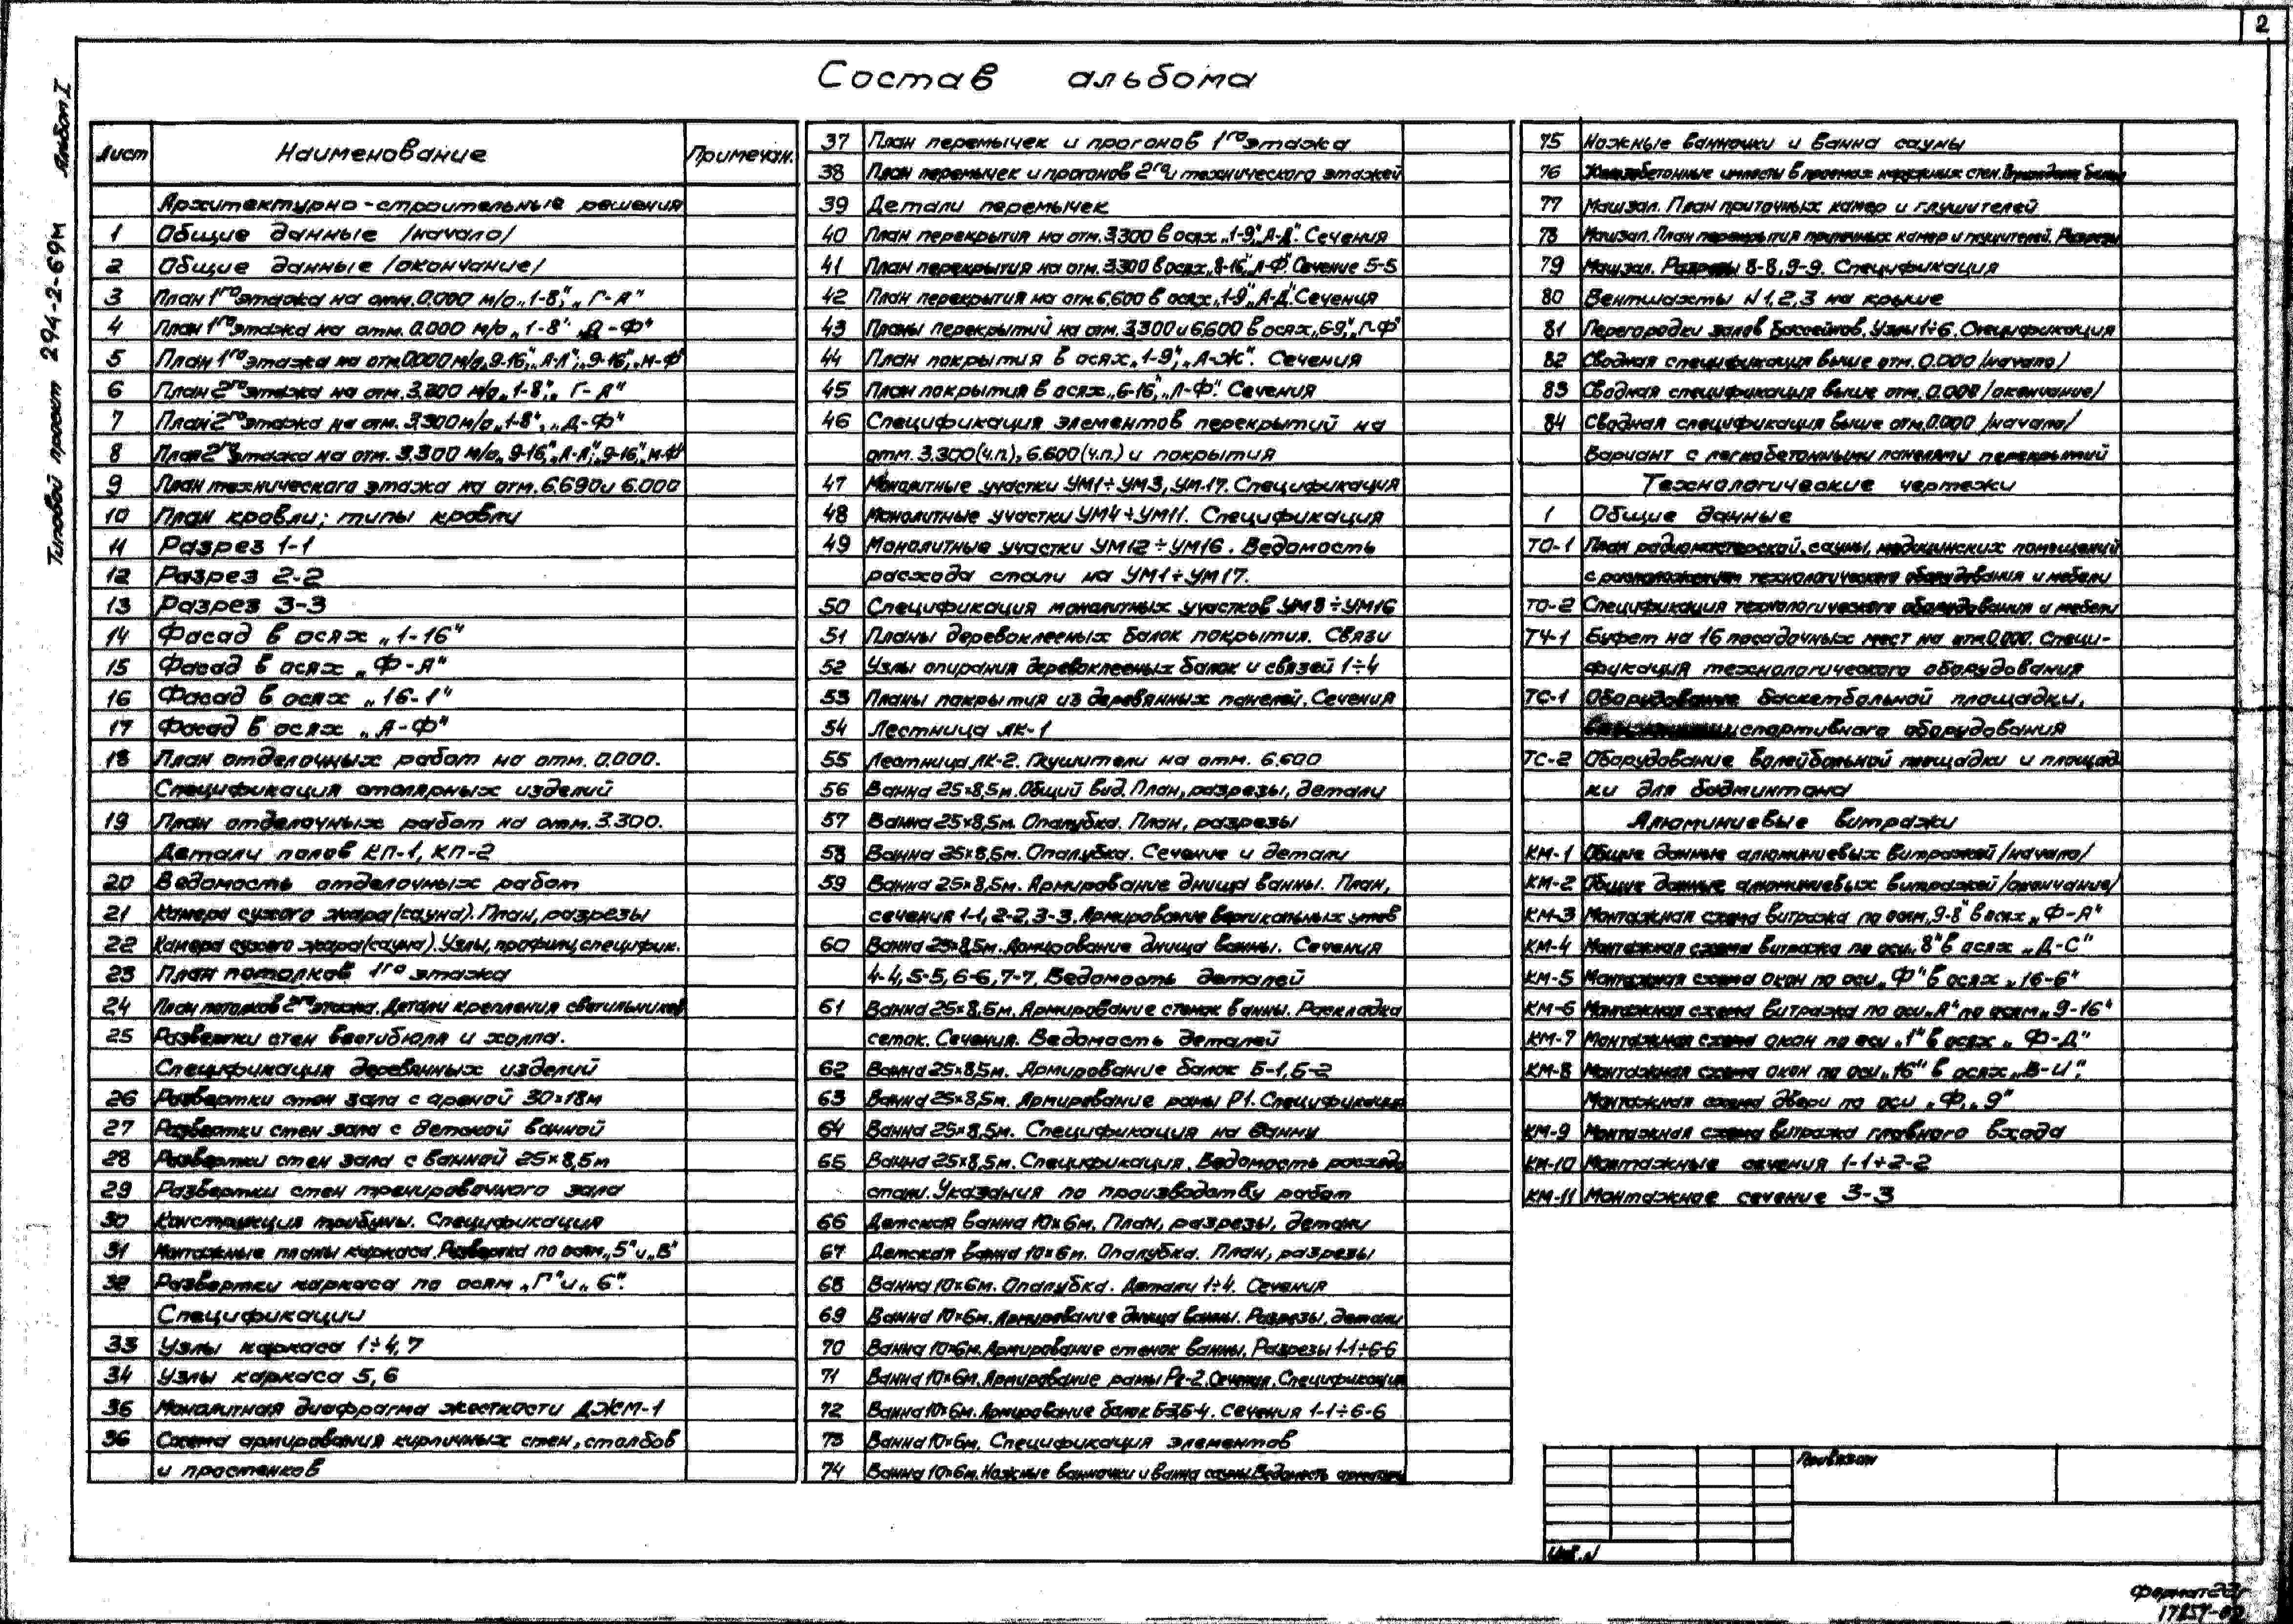 2
Состав альбома
Типовой проект 294-2-69м Альбом I
Лист Наименование Примечан.
Архитектурно-строительные решения
1 Общие данные /начало/
2 Общие данные /окончание/
3 План 1го этажа на отм. 0.000 м/о „1-8", „Г-А"
4 План 1го этажа на отм. 0.000 м/о „1-8" „Д-Ф"
5 План 1го этажа на отм. 0.000 м/о „9-16", „А-Л", „9-16", „М-Ф"
6 План 2го этажа на отм. 3.300 м/о „1-8", „Г-А"
7 План 2го этажа на отм. 3.300 м/о „1-8", „Д-Ф"
8 План 2го этажа на отм. 3.300 м/о „9-16", „А-Л", „9-16", М-Ф"
9 План технического этажа на отм. 6.690 и 6.000
10 План кровли; типы кровли
11 Разрез 1-1
12 Разрез 2-2
13 Разрез 3-3
14 Фасад в осях „1-16"
15 Фасад в осях „Ф-А"
16 Фасад в осях „16-1"
17 Фасад в осях „А-Ф"
18 План отделочных работ на отм. 0.000.
Спецификация столярных изделий
19 План отделочных работ на отм. 3.300.
Детали полов КП-1, КП-2
20 Ведомость отделочных работ
21 Камера сухого жара (сауна). План, разрезы
22 Камера сухого жара (сауна). Узлы, профили, специфик.
23 План потолков 1го этажа
24 План потолков 2го этажа. Детали крепления светильников
25 Развертки стен вестибюля и холла.
Спецификация деревянных изделий
26 Развертки стен зала с ареной 30×18м
27 Развертки стен зала с детской ванной
28 Развертки стен зала с ванной 25×8,5м
29 Развертки стен тренировочного зала
30 Конструкция трибуны. Спецификация
31 Монтажные планы каркаса. Развертка по осям „5" и „В"
32 Развертки каркаса по осям „Г" и „6".
Спецификации
33 Узлы каркаса 1÷4,7
34 Узлы каркаса 5,6
35 Монолитная диафрагма жесткости ДЖМ-1
36 Схема армирования кирпичных стен, столбов
и простенков
37 План перемычек и прогонов 1го этажа
38 План перемычек и прогонов 2го и технического этажей
39 Детали перемычек
40 План перекрытия на отм. 3.300 в осях „1-9", „А-Д". Сечения
41 План перекрытия на отм. 3.300 в осях „8-16", „Л-Ф". Сечение 5-5
42 План перекрытия на отм. 6.600 в осях „1-9", „А-Д". Сечения
43 Планы перекрытий на отм. 3.300 и 6.600 в осях „6-9", „Г-Ф"
44 План покрытия в осях „1-9", „А-Ж". Сечения
45 План покрытия в осях „6-16", „Л-Ф". Сечения
46 Спецификация элементов перекрытий на
отм. 3.300 (ч.п.), 6.600 (ч.п.) и покрытия
47 Монолитные участки УМ1÷УМ3, УМ-17. Спецификация
48 Монолитные участки УМ4÷УМ11. Спецификация
49 Монолитные участки УМ12÷УМ16. Ведомость
расхода стали на УМ1÷УМ17.
50 Спецификация монолитных участков УМ8÷УМ16
51 Планы деревоклееных балок покрытия. Связи
52 Узлы опирания деревоклееных балок и связей 1÷4
53 Планы покрытия из деревянных панелей. Сечения
54 Лестница ЛК-1
55 Лестница ЛК-2. Глушители на отм. 6.600
56 Ванна 25×8,5м. Общий вид. План, разрезы, детали
57 Ванна 25×8,5м. Опалубка. План, разрезы
58 Ванна 25×8,5м. Опалубка. Сечение и детали
59 Ванна 25×8,5м. Армирование днища ванны. План,
сечения 1-1, 2-2, 3-3. Армирование вертикальных
60 Ванна 25×8,5м. Армирование днища ванны. Сечения
4-4, 5-5, 6-6, 7-7. Ведомость деталей
61 Ванна 25×8,5м. Армирование стенок ванны. Раскладка
сеток. Сечения. Ведомость деталей
62 Ванна 25×8,5м. Армирование балок Б-1, Б-2
63 Ванна 25×8,5м. Армирование рамы Р1. Спецификация
64 Ванна 25×8,5м. Спецификация на ванну
65 Ванна 25×8,5м. Спецификация. Ведомость расхода
стали. Указания по производству работ
66 Детская ванна 10×6м. План, разрезы, детали
67 Детская ванна 10×6м. Опалубка. План, разрезы
68 Ванна 10×6м. Опалубка. Детали 1÷4. Сечения
69 Ванна 10×6м. Армирование днища ванны. Разрезы, детали
70 Ванна 10×6м. Армирование стенок ванны. Разрезы 1-1÷6-6
71 Ванна 10×6м. Армирование рамы Рг-2. Сечения. Спецификация
72 Ванна 10×6м. Армирование балок Б-3, Б-4. Сечения 1-1÷6-6
73 Ванна 10×6м. Спецификация элементов
74 Ванна 10×6м. Ножные ванночки и ванна сауны. Ведомость арматуры
75 Ножные ванночки и ванна сауны
76 Железобетонные импосты в проемах наружных стен.
77 Машзал. План приточных камер и глушителей
78 Машзал. План перекрытия приточных камер и глушителей. Разрезы
79 Машзал. Разрезы 8-8, 9-9. Спецификация
80 Вентшахты N 1, 2, 3 на крыше
81 Перегородки залов бассейнов. Узлы 1÷6. Спецификация
82 Сводная спецификация выше отм. 0.000 /начало/
83 Сводная спецификация выше отм. 0.000 /окончание/
84 Сводная спецификация выше отм. 0.000 /начало/
Вариант с легкобетонными панелями перекрытий
Технологические чертежи
1 Общие данные
ТО-1 План радиомастерской, сауны, медицинских помещений
с расположением технологического оборудования и мебели
ТО-2 Спецификация технологического оборудования и мебели
ТЧ-1 Буфет на 16 посадочных мест на отм. 0.000. Специ-
фикация технологического оборудования
ТС-1 Оборудование баскетбольной площадки.
спортивного оборудования
ТС-2 Оборудование волейбольной площадки и площад
ки для бадминтона
Алюминиевые витражи
КМ-1 Общие данные алюминиевых витражей /начало/
КМ-2 Общие данные алюминиевых витражей /окончание/
КМ-3 Монтажная схема витража по осям „9-8" в осях „Ф-А"
КМ-4 Монтажная схема витража по оси „8" в осях „Д-С"
КМ-5 Монтажная схема окон по оси „Ф" в осях „16-6"
КМ-6 Монтажная схема витража по оси „А" по осям „9-16"
КМ-7 Монтажная схема окон по оси „1" в осях „Ф-Д"
КМ-8 Монтажная схема окон по оси „16" в осях „В-И".
Монтажная схема двери по оси „Ф", „9"
КМ-9 Монтажная схема витража главного входа
КМ-10 Монтажные сечения 1-1÷2-2
КМ-11 Монтажное сечение 3-3
Привязан
Инв. N
Формат 22г